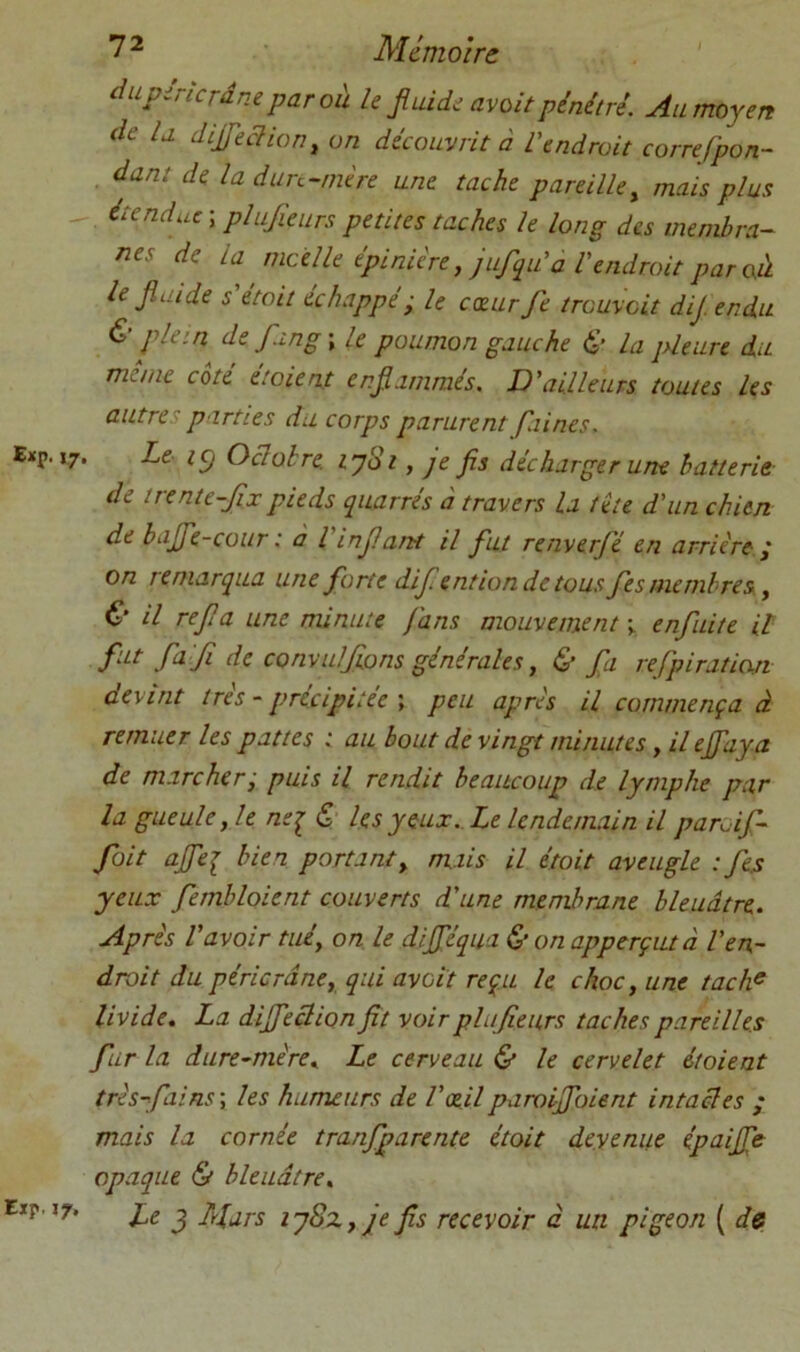 72 Mémoire
du péricrâne par où le fluide avoit pénétré. Au moyen
de la diſſection, on découvrit à l'endroit correſpon-
dant de la dure-mère une tache pareille, mais plus
étendue ; pluſieurs petites taches le long des membra-
nes de la moëlle épinière, juſqu'à l'endroit par où
le fluide s'étoit échappé ; le cœur ſe trouvoit diſtendu
& plein de ſang ; le poumon gauche & la pleure du
même côté étoient enflammés. D'ailleurs toutes les
autres parties du corps parurent ſaines.
Exp. 17. Le 19 Octobre 1781, je fis décharger une batterie
de trente-ſix pieds quarrés à travers la tête d'un chien
de baſſe-cour : à l'inſtant il fut renverſé en arrière ;
on remarqua une forte diſtention de tous ſes membres,
& il reſta une minute ſans mouvement ; enſuite il
fut ſaiſi de convulſions générales, & ſa reſpiration
devint très-précipitée ; peu après il commença à
remuer les pattes : au bout de vingt minutes, il eſſaya
de marcher ; puis il rendit beaucoup de lymphe par
la gueule, le nez & les yeux. Le lendemain il paroiſ-
ſoit aſſez bien portant, mais il étoit aveugle : ſes
yeux ſembloient couverts d'une membrane bleuâtre.
Après l'avoir tué, on le diſſéqua & on apperçut à l'en-
droit du péricrâne, qui avoit reçu le choc, une tache
livide. La diſſection fit voir pluſieurs taches pareilles
ſur la dure-mère. Le cerveau & le cervelet étoient
très-ſains ; les humeurs de l'œil paroiſſoient intactes ;
mais la cornée tranſparente étoit devenue épaiſſe
opaque & bleuâtre.
Exp. 17. Le 3 Mars 1782, je fis recevoir à un pigeon ( de